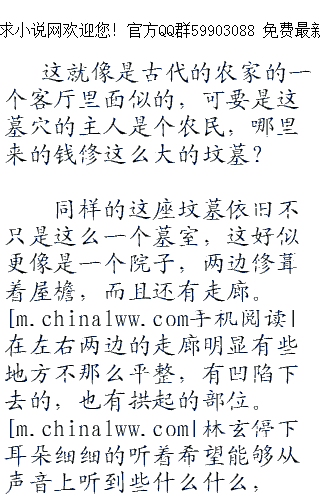 求小说网欢迎您! 官方QQ群59903088 免费最新
这就像是古代的农家的一
个客厅里面似的，可要是这
墓穴的主人是个农民，哪里
来的钱修这么大的坟墓？
同样的这座坟墓依旧不
只是这么一个墓室，这好似
更像是一个院子，两边修葺
着屋檐，而且还有走廊。
[m.chinalww.com手机阅读|
在左右两边的走廊明显有些
地方不那么平整，有凹陷下
去的，也有拱起的部位。
[m.chinalww.com|林玄停下
耳朵细细的听着希望能够从
声音上听到些什么什么，